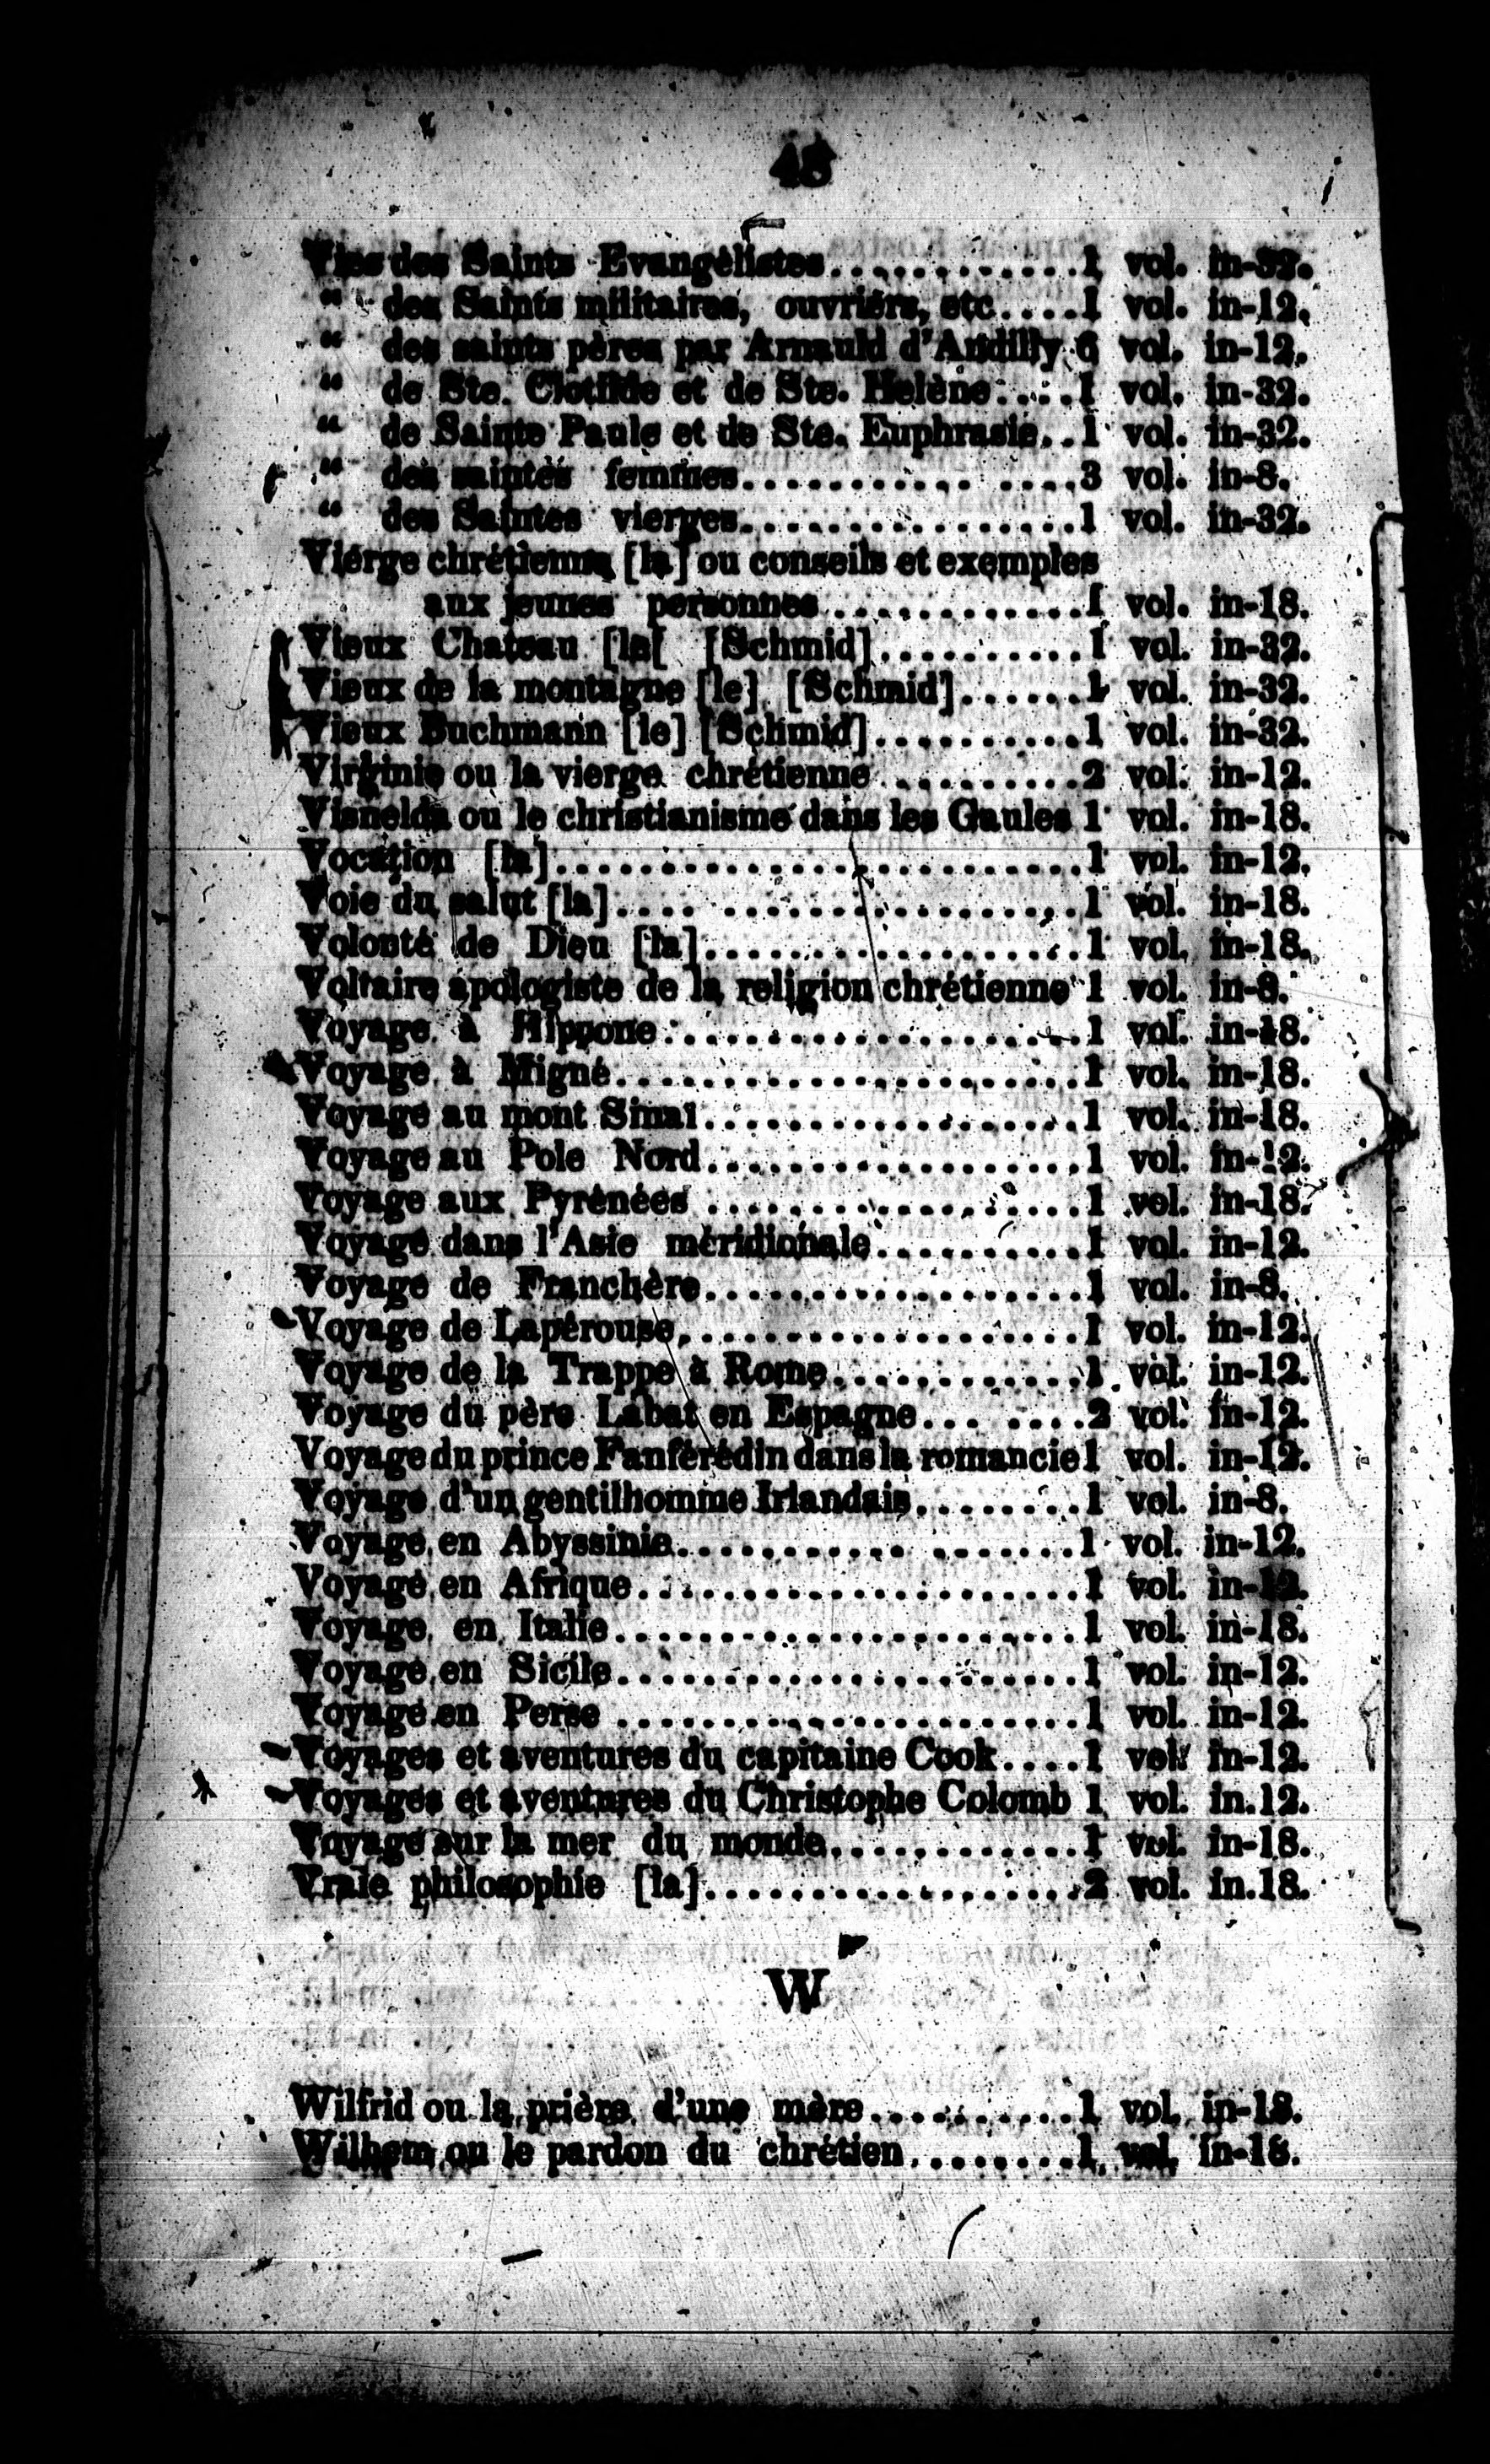 48
Vies des Saints Evangélistes............1 vol. in-32.
“ des Saints militaires, ouvriérs, etc....1 vol. in-12.
“ des saints pères par Arnauld d'Andilly 6 vol. in-12.
“ de Ste. Clotilde et de Ste. Helène....1 vol. in-32.
“ de Sainte Paule et de Ste. Euphrasie..1 vol. in-32.
“ des saintes femmes........... ....3 vol. in-8.
“ des Saintes vierges................1 vol. in-32.
Viérge chrétienne [la] ou conseils et exemples
aux jeunes personnes............1 vol. in-18.
Vieux Chateau [le[ [Schmid]..........1 vol. in-32.
Vieux de la montagne [le] [Schmid]......1 vol. in-32.
Vieux Buchmann [le] [Schmid]..........1 vol. in-32.
Virginie ou la vierge chrétienne.........2 vol. in-12.
Visnelda ou le christianisme dans les Gaules 1 vol. in-18.
Vocation [la].........................1 vol. in-12.
Voie du salut [la].... .................1 vol. in-18.
Volonté de Dieu [la]..................1 vol. in-18.
Voltaire apologiste de la religion chrétienne 1 vol. in-8.
Voyage à Hippone....................1 vol. in-18.
Voyage à Migné......................1 vol. in-18.
Voyage au mont Sinaï..................1 vol. in-18.
Voyage au Pole Nord..................1 vol. in-12.
Voyage aux Pyrénées ..................1 vol. in-18.
Voyage dans l'Asie méridionale..........1 vol. in-12.
Voyage de Franchère..................1 vol. in-8.
Voyage de Lapérouse...................1 vol. in-12.
Voyage de la Trappe à Rome............1 vol. in-12.
Voyage du père Labat en Espagne... ....2 vol. in-12.
Voyage du prince Fanférédin dans la romancie 1 vol. in-12.
Voyage d'un gentilhomme Irlandais........1 vol. in-8.
Voyage en Abyssinie........... .......1 vol. in-12.
Voyage en Afrique.....................1 vol. in-12.
Voyage en Italie......................1 vol. in-18.
Voyage en Sicile......................1 vol. in-12.
Voyage en Perse ......................1 vol. in-12.
Voyages et aventures du capitaine Cook....1 vol. in-12.
Voyages et aventures du Christophe Colomb 1 vol. in.12.
Voyage sur la mer du monde............1 vol. in-18.
Vraie philosophie [la]..................2 vol. in.18.
W
Wilfrid ou la prière d'une mère..........1 vol. in-18.
Wilhem ou le pardon du chrétien........1 vol. in-18.